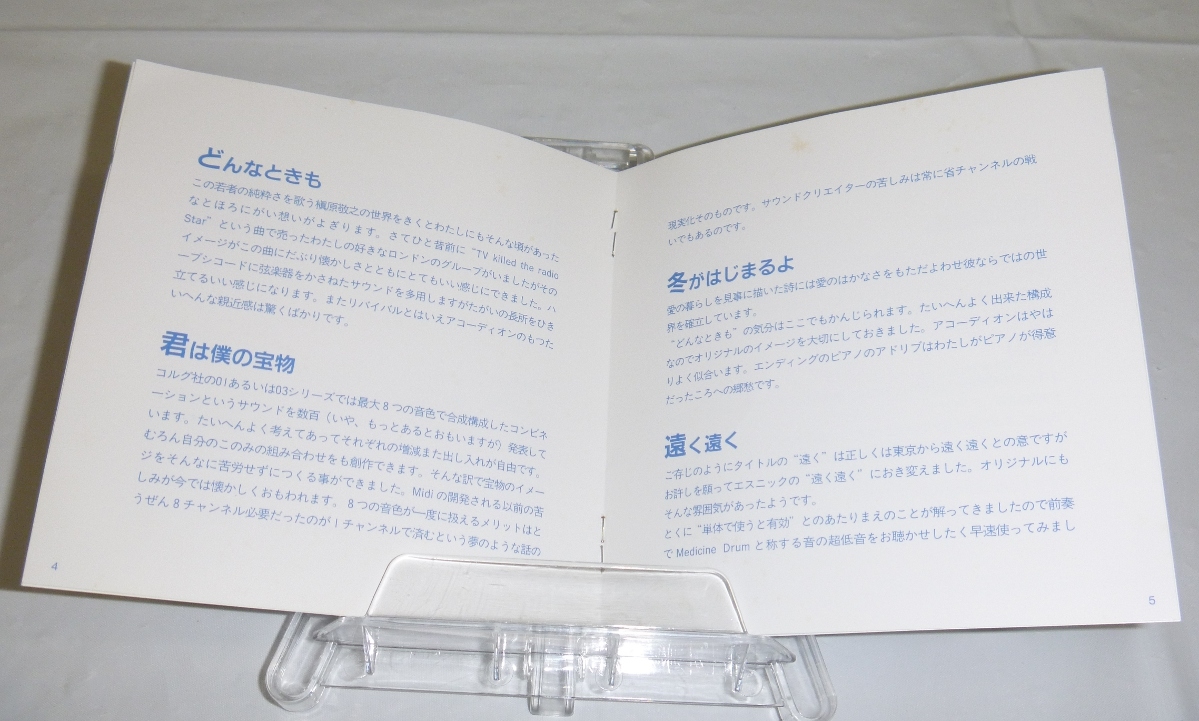 どんなときも
この若者の純粋さを歌う槇原敬之の世界をきくとわたしにもそんな頃があった
なとほろにがい想いがよぎります。さてひと昔前に“TV killed the radio
Star”という曲で売ったわたしの好きなロンドンのグループがいましたがその
イメージがこの曲にだぶり懐かしさとともにとてもいい感じにできました。ハ
ープシコードに弦楽器をかさねたサウンドを多用しますがたがいの長所をひき
立てるいい感じになります。またリバイバルとはいえアコーディオンのもつた
いへんな親近感は驚くばかりです。
君は僕の宝物
コルグ社の01あるいは03シリーズでは最大8つの音色で合成構成したコンビネ
ーションというサウンドを数百（いや、もっとあるとおもいますが）発表して
います。たいへんよく考えてあってそれぞれの増減また出し入れが自由です。
むろん自分のこのみの組み合わせをも創作できます。そんな訳で宝物のイメー
ジをそんなに苦労せずにつくる事ができました。Midiの開発される以前の苦
しみが今では懐かしくおもわれます。8つの音色が一度に扱えるメリットはと
うぜん8チャンネル必要だったのが1チャンネルで済むという夢のような話の
4
現実化そのものです。サウンドクリエイターの苦しみは常に省チャンネルの戦
いでもあるのです。
冬がはじまるよ
愛の暮らしを見事に描いた詩には愛のはかなさをもただよわせ彼ならではの世
界を確立しています。
“どんなときも”の気分はここでもかんじられます。たいへんよく出来た構成
なのでオリジナルのイメージを大切にしておきました。アコーディオンはやは
りよく似合います。エンディングのピアノのアドリブはわたしがピアノが得意
だったころへの郷愁です。
遠く遠く
ご存じのようにタイトルの“遠く”は正しくは東京から遠く遠くとの意ですが
お許しを願ってエスニックの“遠く遠く”におき変えました。オリジナルにも
そんな雰囲気があったようです。
とくに“単体で使うと有効”とのあたりまえのことが解ってきましたので前奏
でMedicine Drumと称する音の超低音をお聴かせしたく早速使ってみまし
5